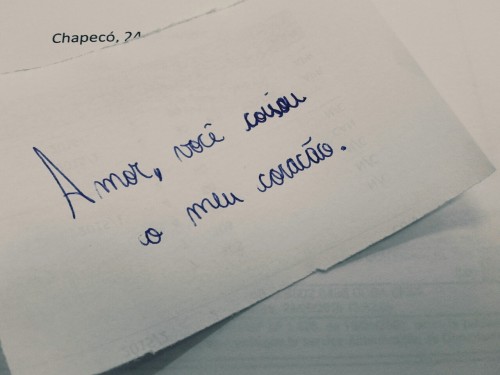 Chapecó, 24
Amor, você coisou
o meu coração.